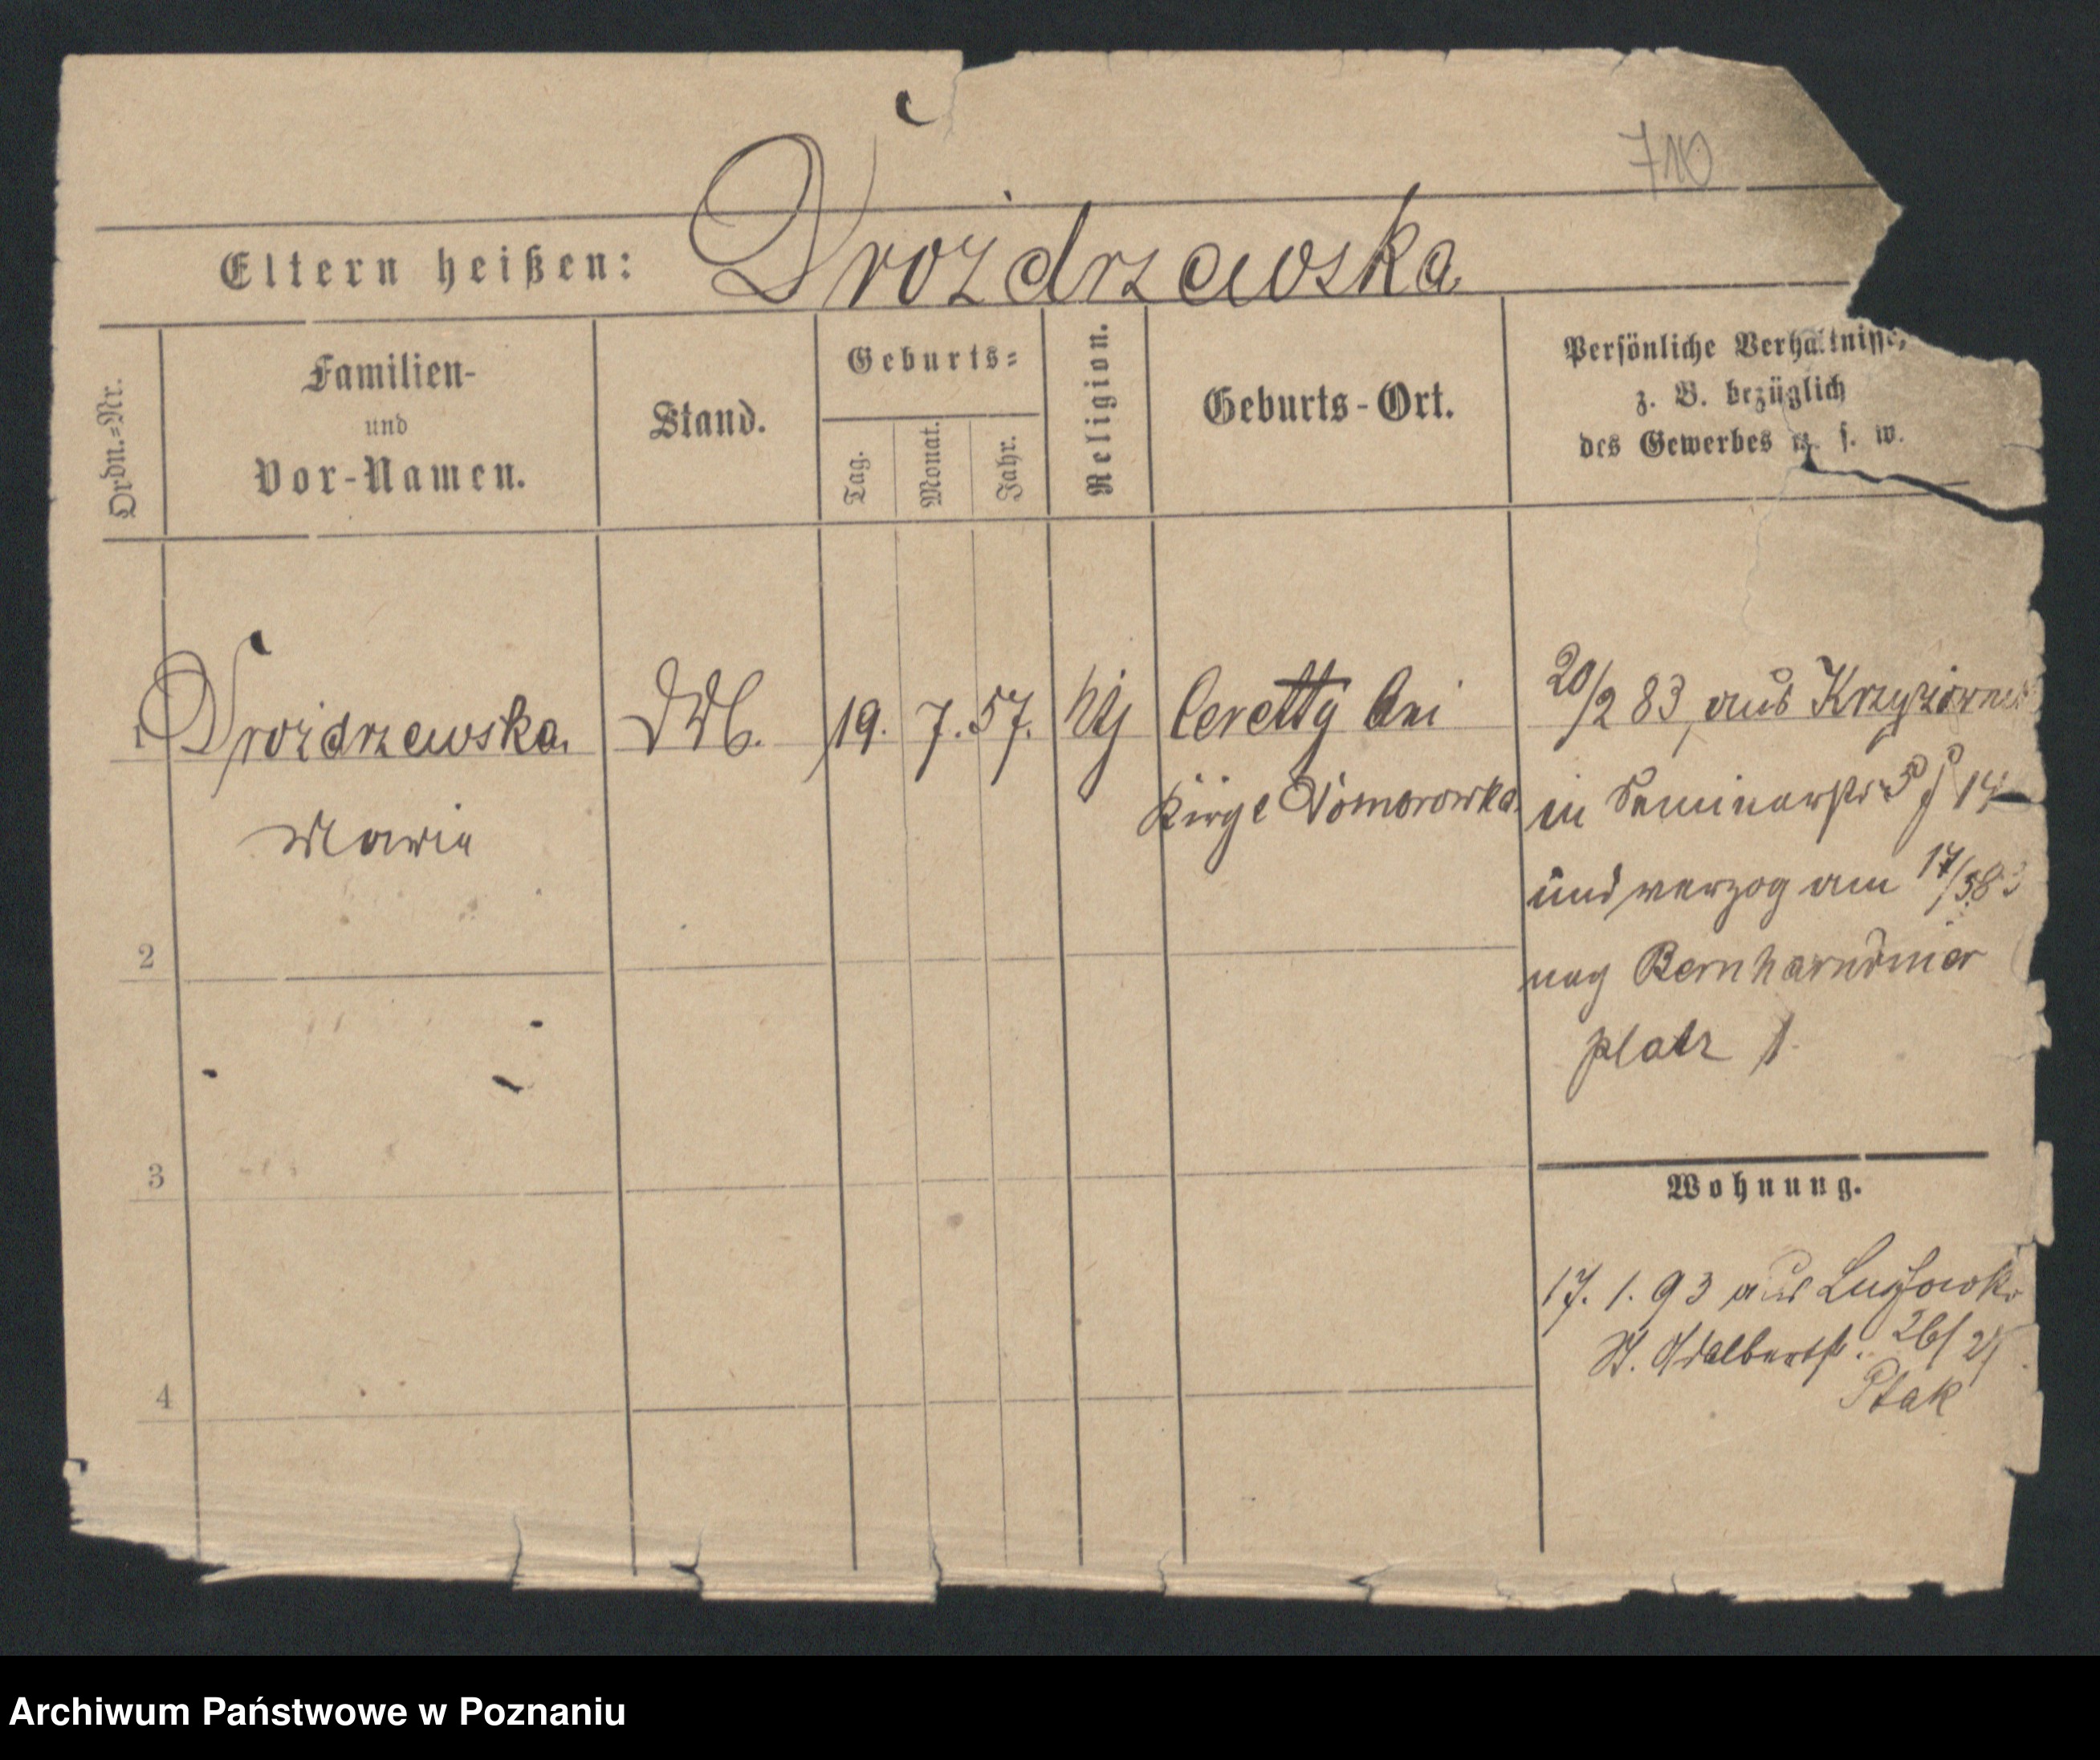 710
Eltern heißen: Drożdrzewska
Ordn.=Nr.
Familien-
und
Vor-Namen.
Stand.
Geburts=
Tag.
Monat.
Jahr.
Religion.
Geburts-Ort.
Persönliche Verhältnisse,
z. B. bezüglich
des Gewerbes u. s. w.
1 Drożdrzewska 19. 7. 57.
Maria
20/2 83, aus
in 14
und verzog am 17/5 83
nag Bernhardiner
platz 1.
2
3
4
Wohnung.
17. 1. 93 aus
St. Adalbertst. 26/27
Ptak
Archiwum Państwowe w Poznaniu